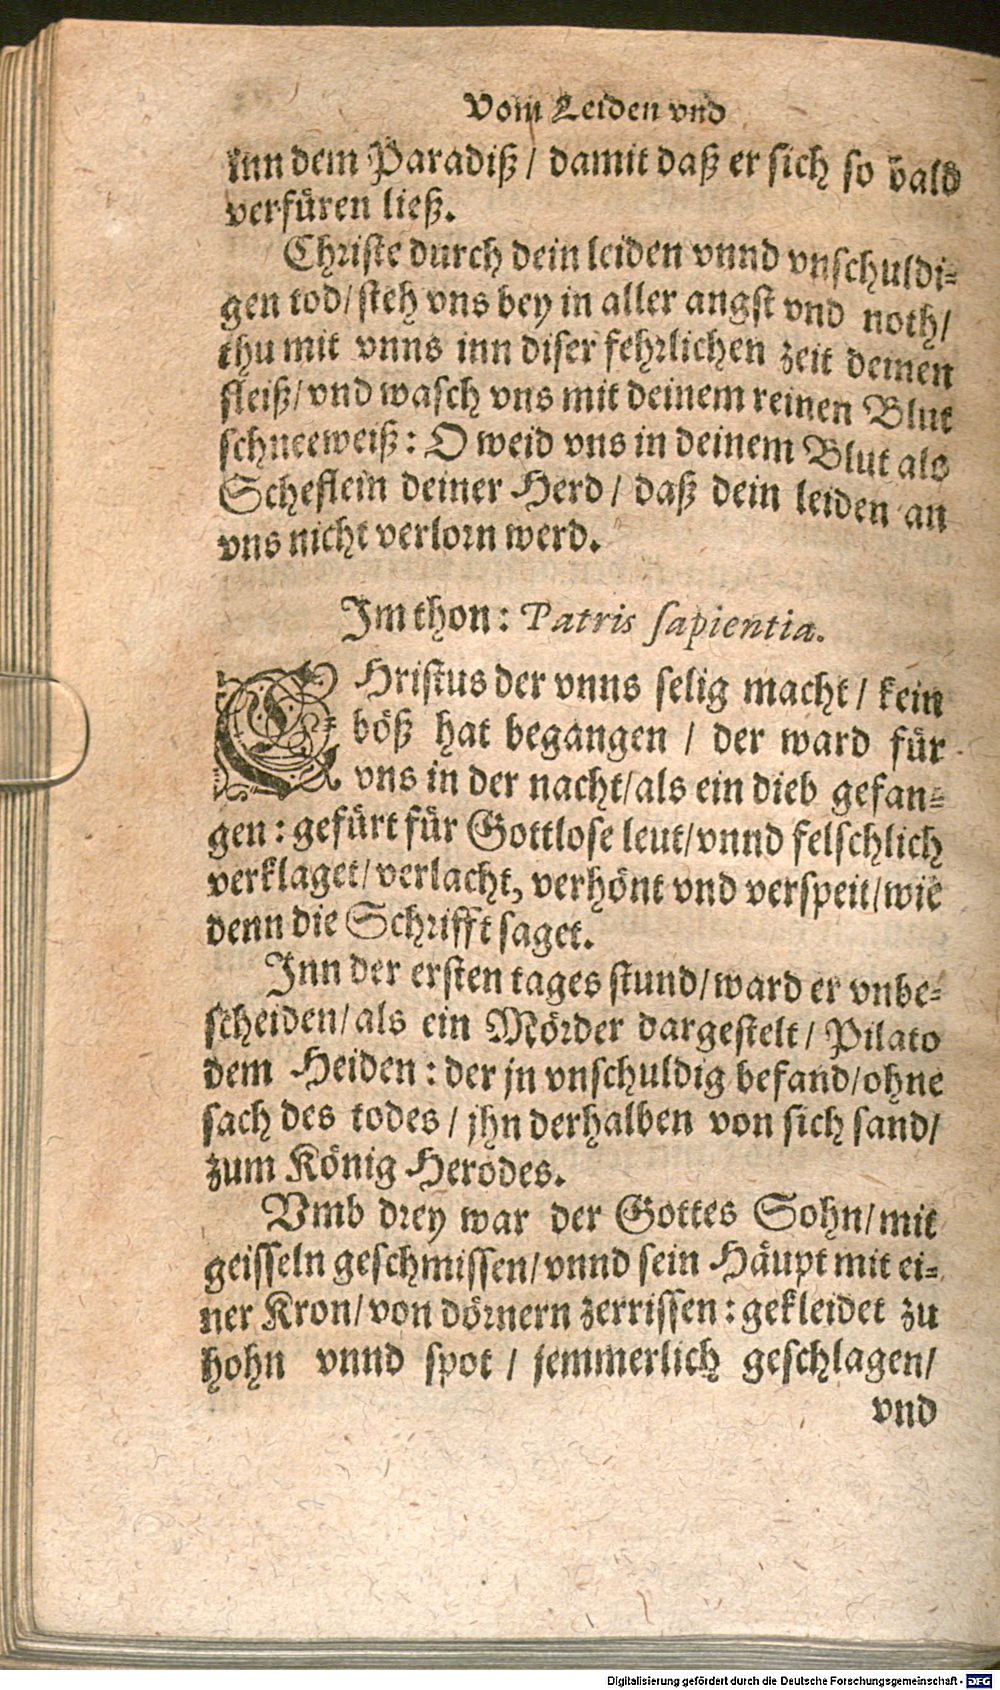 Vom Leiden vnd
inn dem Paradiß / damit daß er sich so bald
verfüren ließ.
Christe durch dein leiden vnnd vnschuldi-
gen tod/ steh vns bey in aller angst vnd noth/
thu mit vnns inn diser fehrlichen zeit deinen
fleiß/ vnd wasch vns mit deinem reinen Blut
schneeweiß: O weid vns in deinem Blut als
Scheflein deiner Herd / daß dein leiden an
vns nicht verlorn werd.
Im thon: Patris sapientia.
CHristus der vnns selig macht / kein
böß hat begangen / der ward für
vns in der nacht/ als ein dieb gefan-
gen: gefürt für Gottlose leut/ vnnd felschlich
verklaget/ verlacht, verhönt vnd verspeit/ wie
denn die Schrifft saget.
Inn der ersten tages stund/ ward er vnbe-
scheiden/ als ein Mörder dargestelt / Pilato
dem Heiden: der jn vnschuldig befand/ ohne
sach des todes / jhn derhalben von sich sand/
zum König Herodes.
Vmb drey war der Gottes Sohn/ mit
geisseln geschmissen/ vnnd sein Häupt mit ei-
ner Kron/ von dörnern zerrissen: gekleidet zu
hohn vnnd spot / jemmerlich geschlagen/
vnd
Digitalisierung gefördert durch die Deutsche Forschungsgemeinschaft - DFG